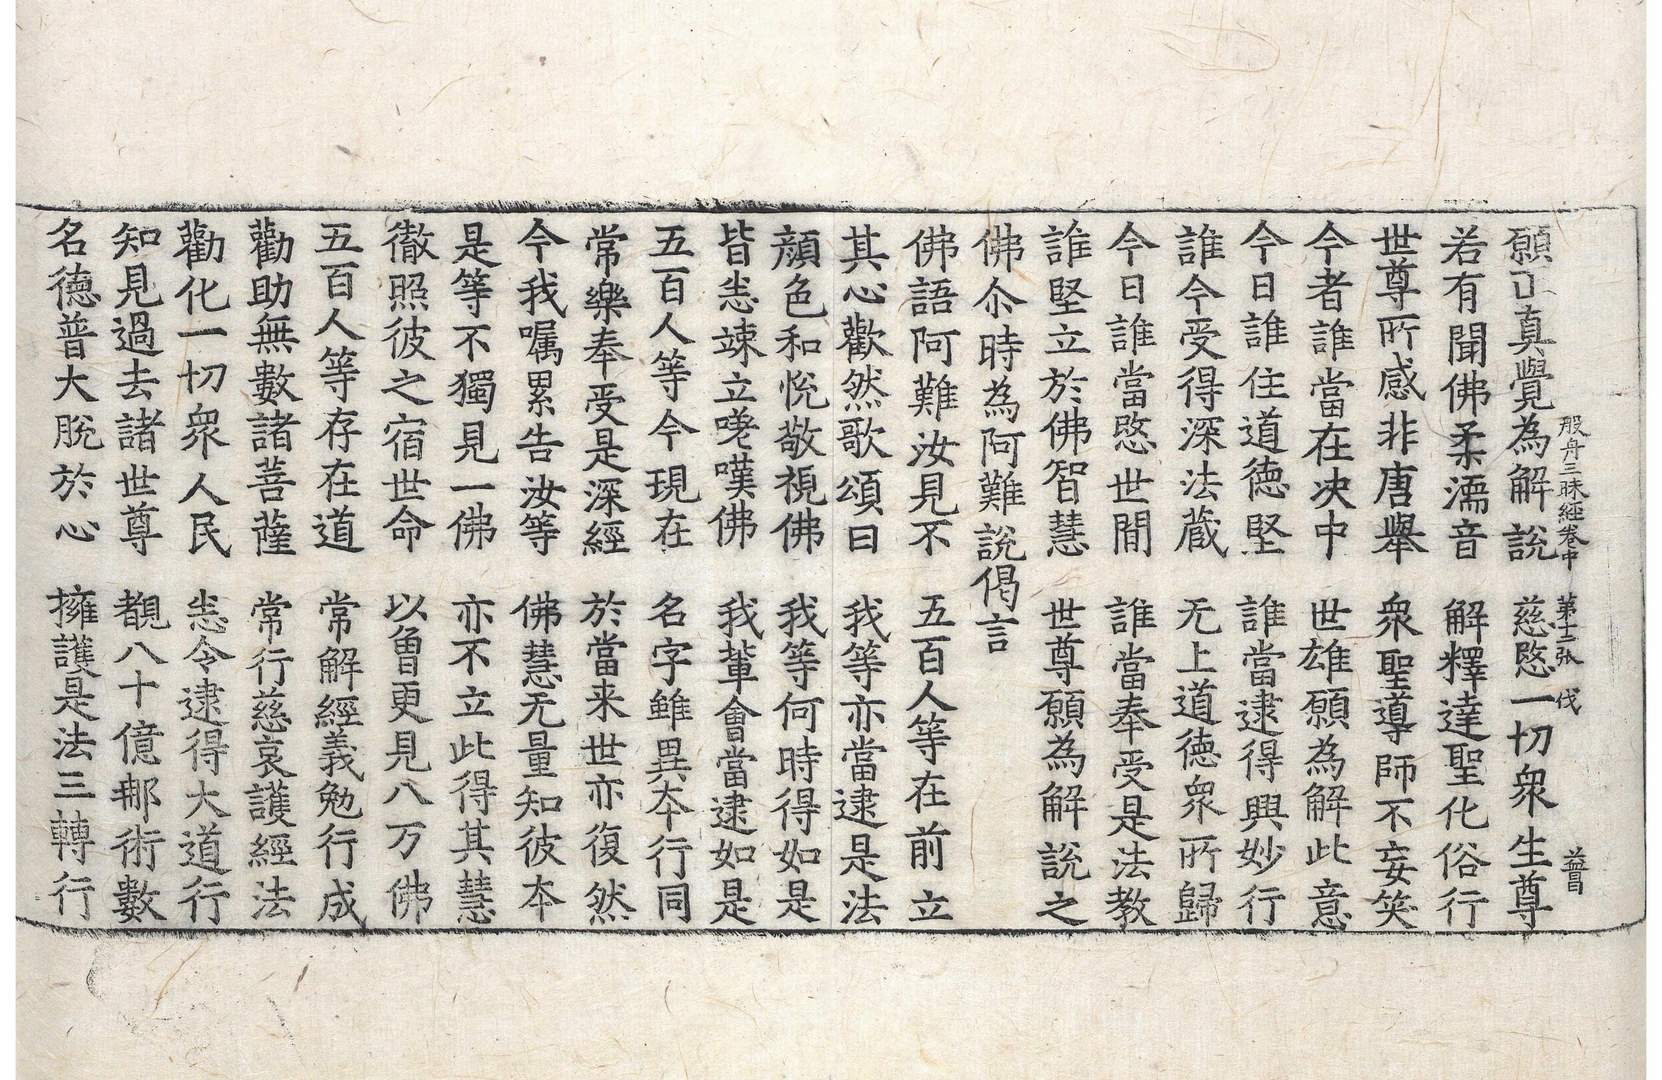 般舟三昧経卷中 第十二张 伐
願正真覺為解說 慈愍一切衆生尊
若有聞佛柔濡音 解釋達聖化俗行
世尊所感非唐舉 衆聖導師不妄笑
今者誰當在决中 世雄願為解此意
今日誰住道德堅 誰當逮得興妙行
誰今受得深法蔵 无上道徳衆所歸
今日誰當愍世間 誰當奉受是法教
誰堅立於佛智慧 世尊願為解說之
佛尒時為阿難說偈言
佛語阿難汝見不 五百人等在前立
其心歡然歌頌曰 我等亦當逮是法
顔色和悅敬視佛 我等何時得如是
皆悉竦立嗟嘆佛 我輩會當逮如是
五百人等今現在 名字雖異夲行同
常樂奉受是深經 於當来世亦復然
今我嘱累告汝等 佛慧无量知彼夲
是等不獨見一佛 亦不立此得其慧
徹照彼之宿世命 以曽更見八万佛
五百人等存在道 常解經義勉行成
勸助無數諸菩薩 常行慈哀護經法
勸化一切衆人民 悉令逮得大道行
知見過去諸世尊 覩八十億那術數
名德普大脫於心 擁護是法三轉行